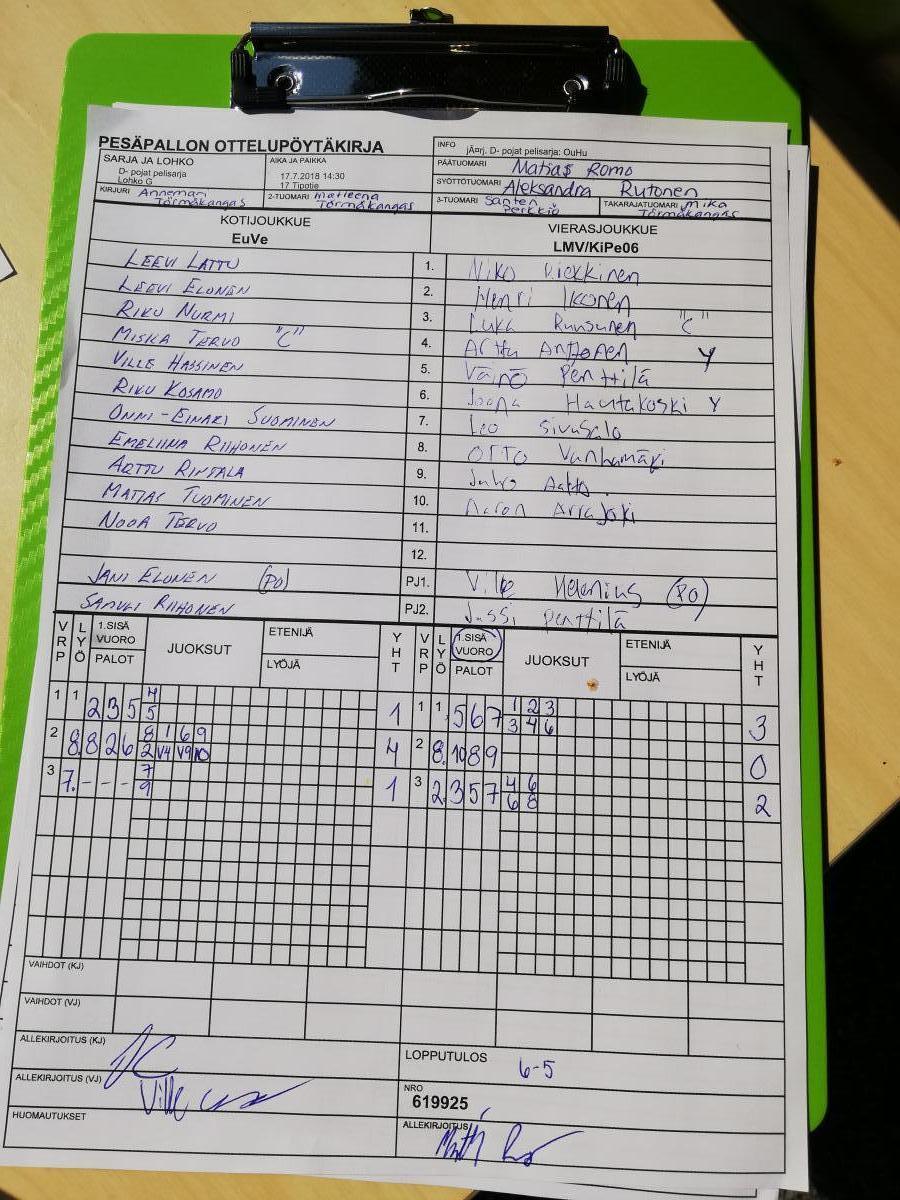 PESÄPALLON OTTELUPÖYTÄKIRJA
INFO
jÄ¤rj. D- pojat pelisarja: OuHu
SARJA JA LOHKO
D- pojat pelisarja
Lohko G
AIKA JA PAIKKA
17.7.2018 14:30
17 Tipotie
PÄÄTUOMARI Matias Romo
SYÖTTÖTUOMARI Aleksandra Rutonen
KIRJURI Annemari Törmäkangas
2-TUOMARI Matleena Törmäkangas
3-TUOMARI Santeri Perkkiö
TAKARAJATUOMARI Mika Törmäkangas
KOTIJOUKKUE
EuVe
VIERASJOUKKUE
LMV/KiPe06
LEEVI LATTU 1. Niko
LEEVI ELONEN 2. Henri Ikonen
RIKU NURMI 3. Luka Ruusunen "C"
MISKA TERVO "C" 4. Arttu Anttonen Y
VILLE HASSINEN 5. Väinö Penttilä
RIKU KOSAMO 6. Joona Hautakoski Y
ONNI-EINARI SUOMINEN 7. Leo Sivusalo
EMELIINA RIIHONEN 8. Otto Vanhamäki
ARTTU RINTALA 9. Juho Aatto
MATIAS TUOMINEN 10. Aaron Arrajoki
NOOA TERVO 11.
12.
JANI ELONEN (PO) PJ1. Ville Helenius (PO)
SAMULI RIIHONEN PJ2. Jussi Penttilä
VRP LYÖ 1.SISÄ VUORO PALOT JUOKSUT ETENIJÄ LYÖJÄ YHT
VRP LYÖ 1.SISÄ VUORO PALOT JUOKSUT ETENIJÄ LYÖJÄ YHT
1 1 2 3 5 4 1 1 1. 5 6 7 1 2 3 3
5 3 4 6
2 8. 8 2 6 8 1 6 9 4 2 8. 10 8 9 0
2 V4 V9 10
3 7. - - - 7 1 3 2 3 5 7 4 6 2
9 6 8
VAIHDOT (KJ)
VAIHDOT (VJ)
ALLEKIRJOITUS (KJ)
LOPPUTULOS 6-5
ALLEKIRJOITUS (VJ) Ville
NRO
619925
HUOMAUTUKSET
ALLEKIRJOITUS